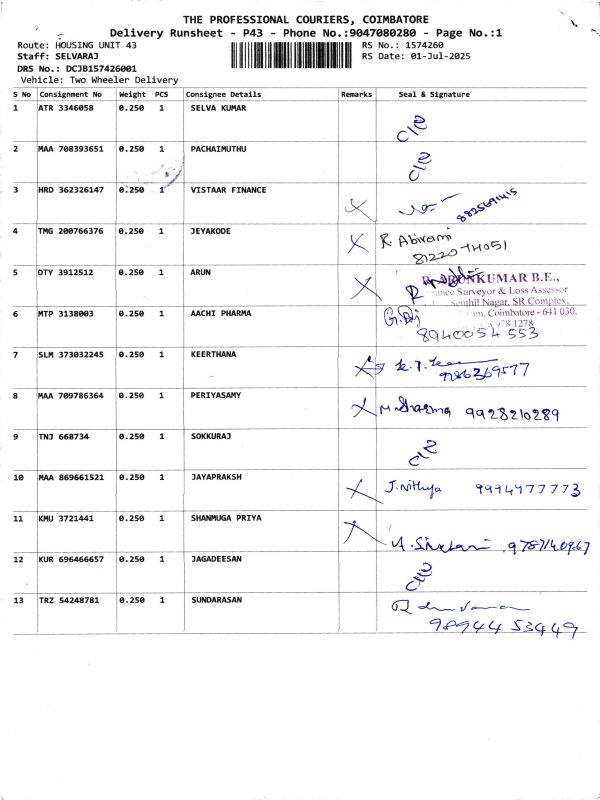 THE PROFESSIONAL COURIERS, COIMBATORE
Delivery Runsheet - P43 - Phone No.:9047080280 - Page No.:1
Route: HOUSING UNIT 43 RS No.: 1574260
Staff: SELVARAJ RS Date: 01-Jul-2025
DRS No.: DCJB157426001
Vehicle: Two Wheeler Delivery
S No Consignment No Weight PCS Consignee Details Remarks Seal & Signature
1 ATR 3346058 0.250 1 SELVA KUMAR
2 MAA 708393651 0.250 1 PACHAIMUTHU
3 HRD 362326147 0.250 1 VISTAAR FINANCE 8825691415
4 TMG 200766376 0.250 1 JEYAKODE R. Abirami
81220 74051
5 OTY 3912512 0.250 1 ARUN KUMAR B.E.,
Surveyor & Loss Assessor
Senthil Nagar, SR Complex,
Coimbatore - 641 030.
978 1278
6 MTP 3138003 0.250 1 AACHI PHARMA
8940054 553
7 SLM 373032245 0.250 1 KEERTHANA
9786369577
8 MAA 709786364 0.250 1 PERIYASAMY M. Sharma 9928210289
9 TNJ 668734 0.250 1 SOKKURAJ
10 MAA 869661521 0.250 1 JAYAPRAKSH J. Nithya 9994977773
11 KMU 3721441 0.250 1 SHANMUGA PRIYA
12 KUR 696466657 0.250 1 JAGADEESAN
13 TRZ 54248781 0.250 1 SUNDARASAN
98944 53449